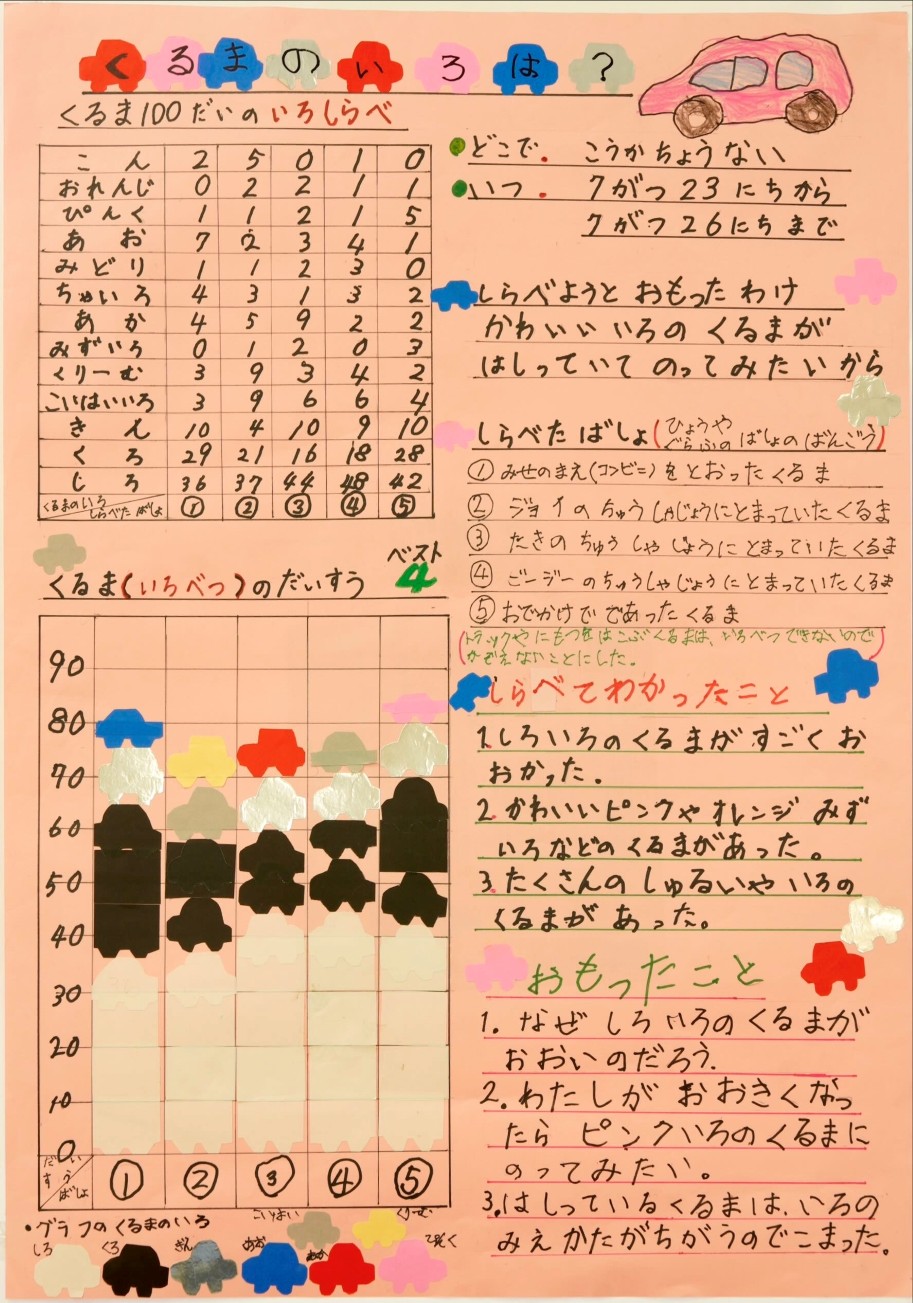 くるまのいろは?
くるま100だいのいろしらべ
こん 2 5 0 1 0
おれんじ 0 2 2 1 1
ぴんく 1 1 2 1 5
あお 7 2 3 4 1
みどり 1 1 2 3 0
ちゃいろ 4 3 1 3 2
あか 4 5 9 2 2
みずいろ 0 1 2 0 3
くりーむ 3 9 3 4 2
こいはいいろ 3 9 6 6 4
きん 10 4 10 9 10
くろ 29 21 16 18 28
しろ 36 37 44 48 42
くるまのいろ
しらべたばしょ ① ② ③ ④ ⑤
くるま(いろべつ)のだいすう
ベスト
4
90
80
70
60
50
40
30
20
10
0
だいすう
ばしょ
① ② ③ ④ ⑤
・グラフのくるまのいろ
しろ くろ ぎん あお あか ぴんく
どこで. こうかちょうない
いつ. 7がつ23にちから
7がつ26にちまで
しらべようとおもったわけ
かわいいいろのくるまが
はしっていてのってみたいから
しらべたばしょ(ひょうや
ぐらふのばしょのばんごう)
①みせのまえ(コンビニ)をとおったくるま
②ジョイのちゅうしゃじょうにとまっていたくるま
③たきのちゅうしゃじょうにとまっていたくるま
④ごージーのちゅうしゃじょうにとまっていたくるま
⑤おでかけでであったくるま
(トラックやにもつをはこぶくるまは、いろべつできないので
かぞえないことにした。)
しらべてわかったこと
1.しろいろのくるまがすごくお
おかった.
2.かわいいピンクやオレンジみず
いろなどのくるまがあった。
3.たくさんのしゅるいやいろの
くるまがあった。
おもったこと
1.なぜしろいろのくるまが
おおいのだろう.
2.わたしがおおきくなっ
たらピンクいろのくるまに
のってみたい。
3.はしっているくるまは、いろの
みえかたがちがうのでこまった。